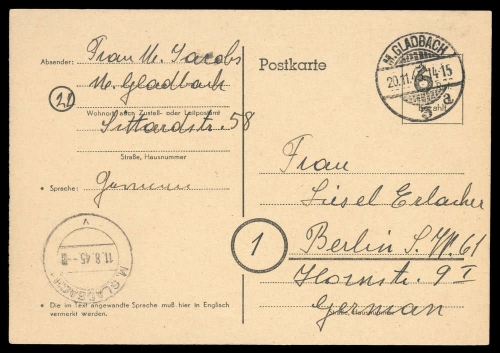 Absender: Frau M. Jacobs
M. Gladbach
22
Wohnort, auch Zustell- oder Leitpostamt
Sittardstr. 58
Straße, Hausnummer
• Sprache: German
11.8.45
M. GLADBACH
• Die im Text angewandte Sprache muß hier in Englisch
vermerkt werden.
Postkarte
M. GLADBACH
20.11. 14-15
a
Frau
Liesel Erlacher
1
Berlin S.W. 61
Hornstr. 9 I
German
Straße, Hausnummer